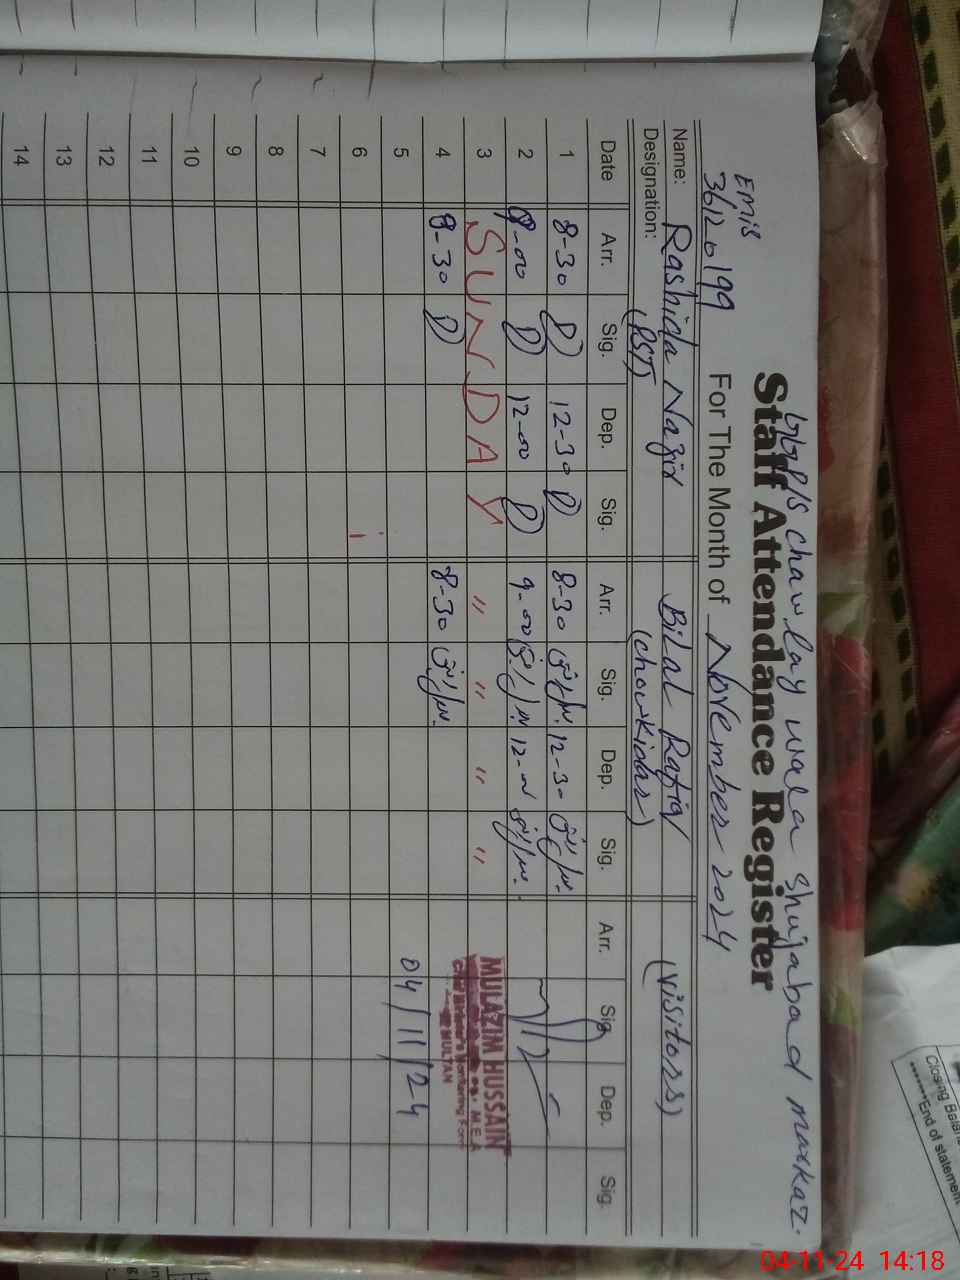 chawlay wala Shujabad markaz.
Staff Attendance Register
Emis
36120199
For The Month of November 2024
Name: Rashida Nazir Bilal Rafiq (visitors)
Designation: (PST) (chowkidar)
Date Arr. Sig. Dep. Sig. Arr. Sig. Dep. Sig. Arr. Sig. Dep. Sig.
1 8-30 12-30 8-30 12-30
2 9-00 12-00 9-00 12-00
3 SUNDAY " " " "
MULAZIM HUSSAIN
M.E.A
Monitoring Force
MULTAN
4 8-30 8-30
5 04/11/24
6
7
8
9
10
11
12
13
14
Closing Balan
******End of statement
04-11-24 14:18